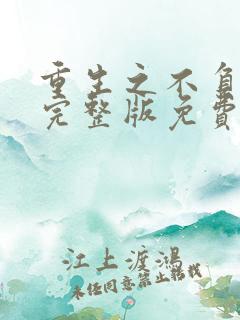 重生之不负
完整版免費
江上渡鴻
未经同意禁止转载